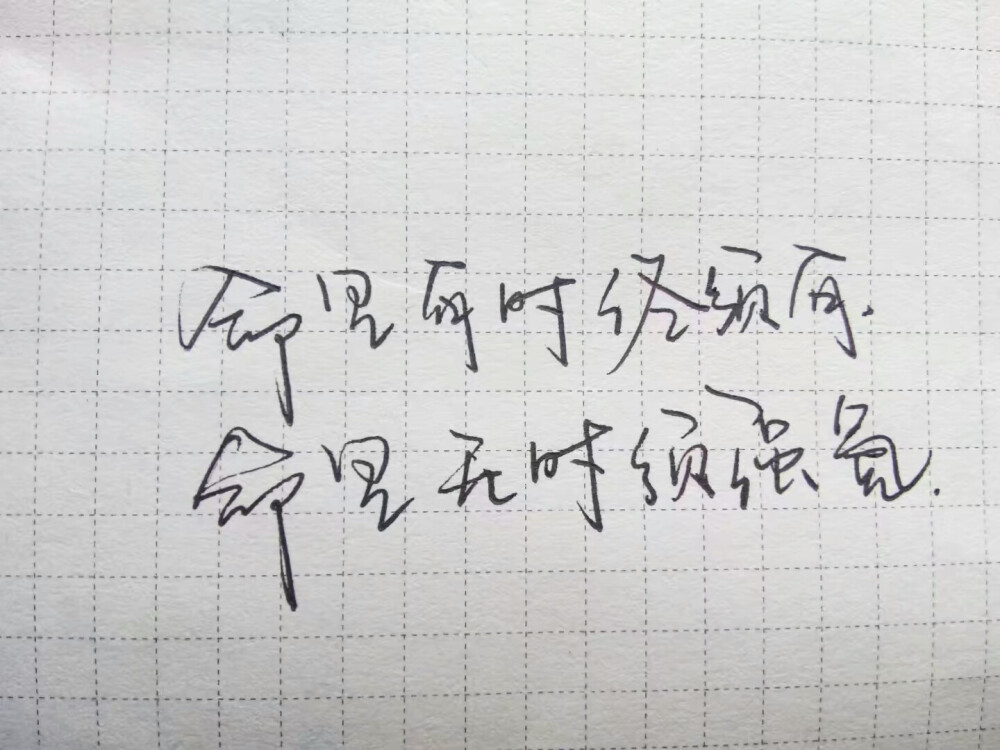 命里有时终须有.
命里无时须强命.